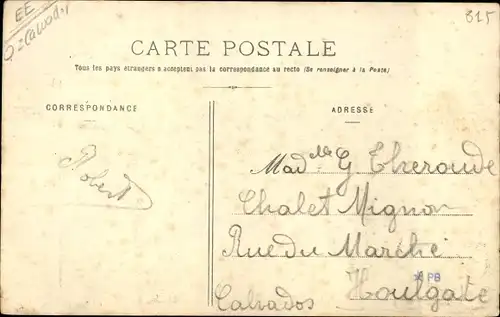 EE
315
CARTE POSTALE
Tous les pays étrangers n'acceptent pas la correspondance au recto (Se renseigner à la Poste)
CORRESPONDANCE
ADRESSE
Robert
Madlle G Theroude
Chalet Mignon
Rue du Marché
PB
Houlgate
Calvados